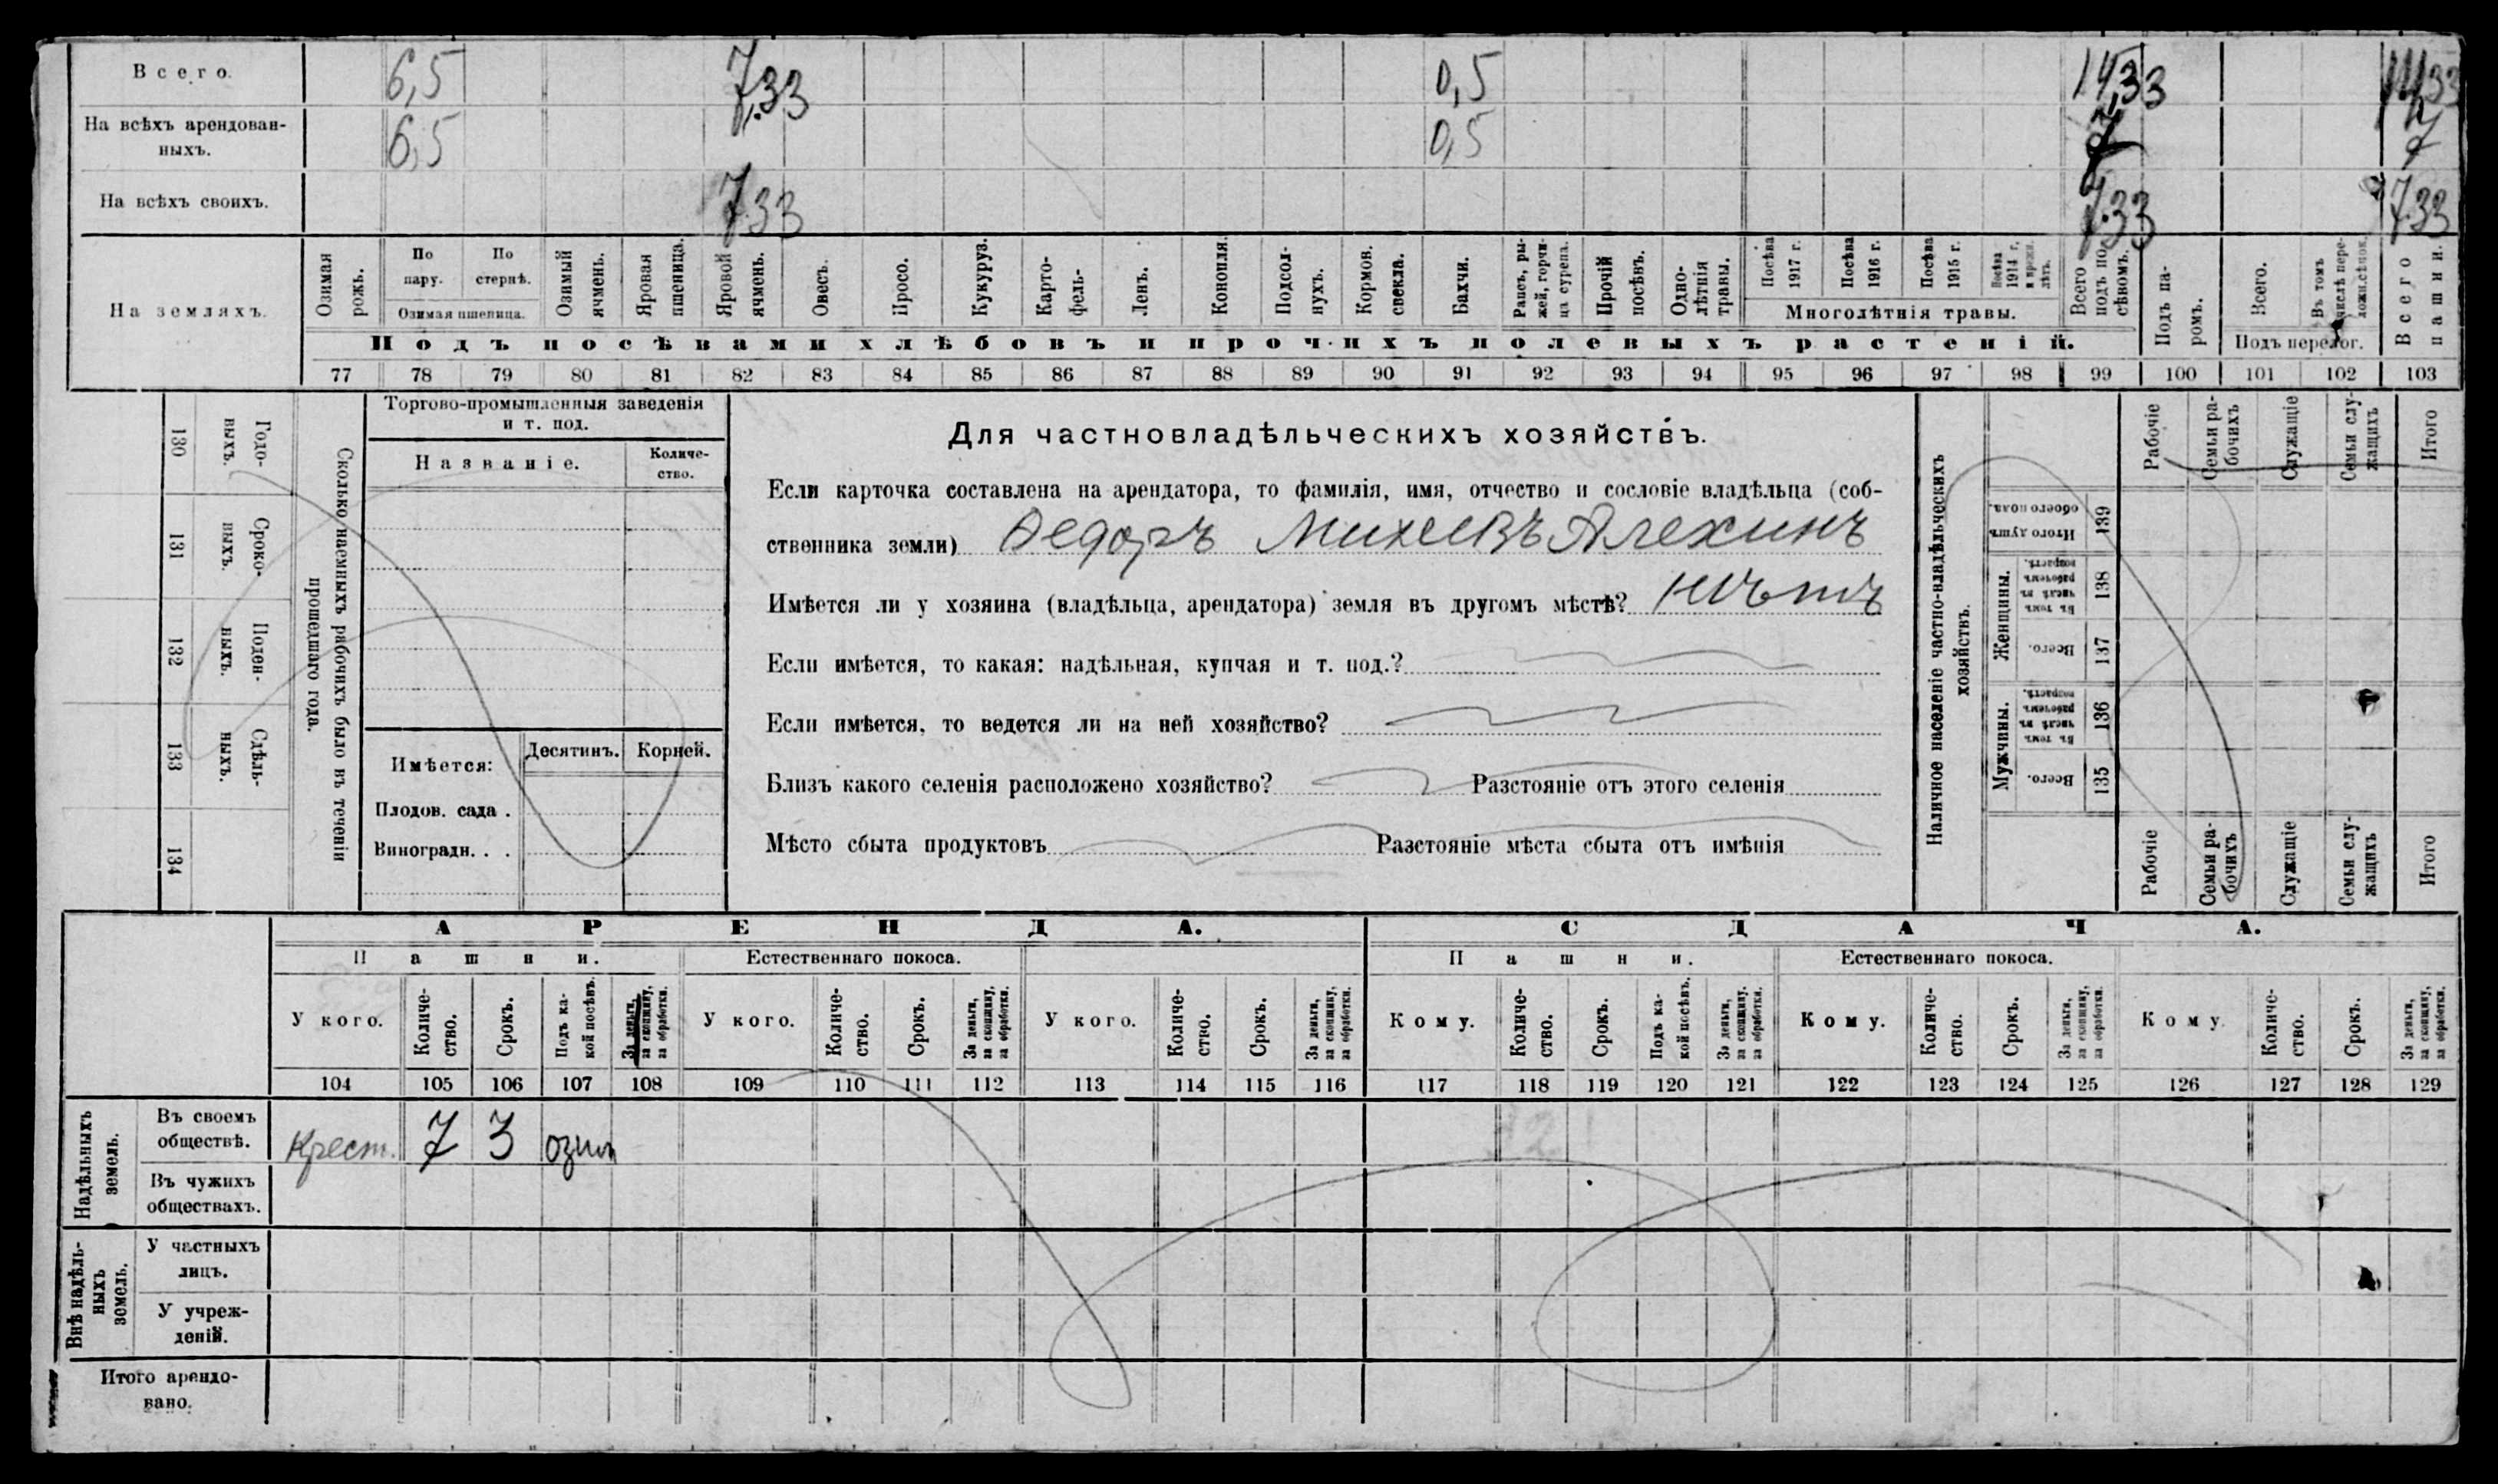 Всего. 6,5 7,33 0,5 14,33 14,33
На всѣхъ арендован-
ныхъ. 6,5 0,5 7 7
На всѣхъ своихъ. 7.33 7.33 7.33
На земляхъ.
Озимая рожь.
По пару.
По стернѣ.
Озимая пшеница.
Озимый ячмень.
Яровая пшеница.
Яровой ячмень.
Овесъ.
Просо.
Кукуруз.
Карто-
фель-
Ленъ.
Конопля.
Подсол-
нухъ.
Кормов. свекла.
Бахчи.
Рапсъ, ры-
жей, горчи-
ца сурепа.
Прочій посѣвъ.
Одно-
лѣтнія травы.
Посѣва 1917 г.
Посѣва 1916 г.
Посѣва 1915 г.
Посѣва 1914 г.
и прежн. лѣтъ.
Многолѣтнія травы.
Всего подъ по-
сѣвомъ.
Подъ посѣвами хлѣбовъ и прочихъ полевыхъ растеній.
Подъ па-
ромъ.
Всего.
Въ томъ числѣ пере-
ложн.сѣнок.
Подъ перелог.
Всего пашни.
77 78 79 80 81 82 83 84 85 86 87 88 89 90 91 92 93 94 95 96 97 98 99 100 101 102 103
Сколько наемныхъ рабочихъ было въ теченіи
прошедшаго года.
Годо-
выхъ.
130
Сроко-
ныхъ.
131
Поден-
ныхъ.
132
Сдѣль-
ныхъ.
133
134
Торгово-промышленныя заведенія
и т. под.
Названіе.
Количе-
ство.
Имѣется: Десятинъ. Корней.
Плодов. сада .
Виноградн. . .
Для частновладѣльческихъ хозяйствъ.
Если карточка составлена на арендатора, то фамилія, имя, отчество и сословіе владѣльца (соб-
ственника земли) Федоръ Михеевъ Алехинъ
Имѣется ли у хозяина (владѣльца, арендатора) земля въ другомъ мѣстѣ? нѣтъ
Если имѣется, то какая: надѣльная, купчая и т. под.?
Если имѣется, то ведется ли на ней хозяйство?
Близъ какого селенія расположено хозяйство? Разстояніе отъ этого селенія
Мѣсто сбыта продуктовъ Разстояніе мѣста сбыта отъ имѣнія
Наличное населеніе частно-владѣльческихъ
хозяйствъ.
Итого душъ обоего пола.
139
Женщины.
Въ томъ числѣ въ рабочемъ возрастѣ.
138
Всего.
137
Мужчины.
Въ томъ числѣ въ рабочемъ возрастѣ.
136
Всего.
135
Рабочіе
Семьи ра-
бочихъ
Служащіе
Семьи слу-
жащихъ
Итого
Рабочіе
Семьи ра-
бочихъ
Служащіе
Семьи слу-
жащихъ
Итого
АРЕНДА. СДАЧА.
Пашни. Естественнаго покоса. Пашни. Естественнаго покоса.
У кого.
Количе-
ство.
Срокъ.
Подъ ка-
кой посѣвъ.
За деньги,
за скопщину,
за обработки.
У кого.
Количе-
ство.
Срокъ.
За деньги,
за скопщину,
за обработки.
У кого.
Количе-
ство.
Срокъ.
За деньги,
за скопщину,
за обработки.
Кому.
Количе-
ство.
Срокъ.
Подъ ка-
кой посѣвъ.
За деньги,
за скопщину.
за обработки.
Кому.
Количе-
ство.
Срокъ.
За деньги,
за скопщину,
за обработки.
Кому.
Количе-
ство.
Срокъ.
За деньги,
за скопщину,
за обработки.
104 105 106 107 108 109 110 111 112 113 114 115 116 117 118 119 120 121 122 123 124 125 126 127 128 129
Надѣльныхъ
земель.
Въ своемъ
обществѣ. Крест. 7 3 озим
Въ чужихъ
обществахъ.
Внѣ надѣль-
ныхъ
земель.
У частныхъ
лицъ.
У учреж-
деній.
Итого арендо-
вано.